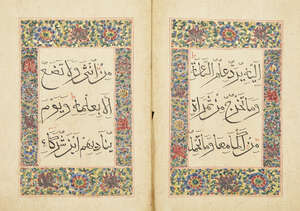 اليه يرد علم الساعة
وما تخرج من ثمرات
من اكمامها وما تحمل
من انثى ولا تضع
الا بعلمه ويوم
يناديهم اين شركاءى